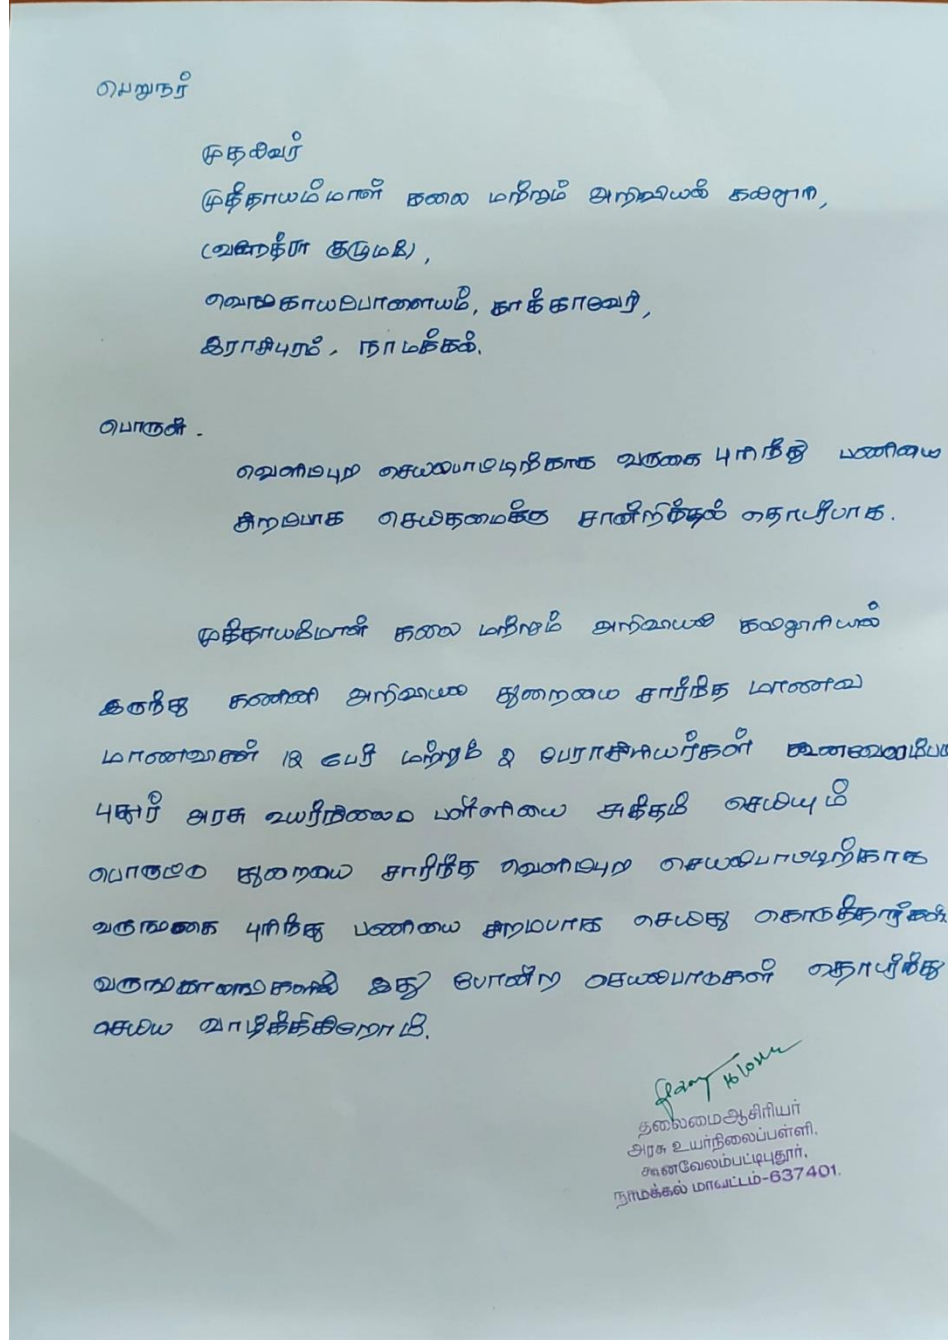 பெறுநர்
முதல்வர்
முத்தாயம்மாள் கலை மற்றும் அறிவியல் கல்லூரி,
(வனேத்ரா குழுமம்),
வெங்காயபாளையம், காக்காவேரி,
இராசிபுரம், நாமக்கல்.
பொருள் -
வெளிப்புற செயல்பாட்டிற்காக வருகை புரிந்து பணியை
சிறப்பாக செய்தமைக்கு சான்றித்தல் தொடர்பாக.
முத்தாயம்மாள் கலை மற்றும் அறிவியல் கல்லூரியில்
இருந்து கணினி அறிவியல் துறையை சார்ந்த மாணவ
மாணவிகள் 12 பேர் மற்றும் 2 பேராசிரியர்கள்
புதூர் அரசு உயர்நிலை பள்ளியை சுத்தம் செய்யும்
பொருட்டு துறையை சார்ந்த வெளிப்புற செயல்பாட்டிற்காக
வருகை புரிந்து பணியை சிறப்பாக செய்து கொடுத்தார்கள்.
இது போன்ற செயல்பாடுகள் தொடர்ந்து
செய்ய வாழ்த்துகிறோம்.
தலைமைஆசிரியர்
அரசு உயர்நிலைப்பள்ளி,
கூனவேலம்பட்டிபுதூர்,
நாமக்கல் மாவட்டம்-637401.